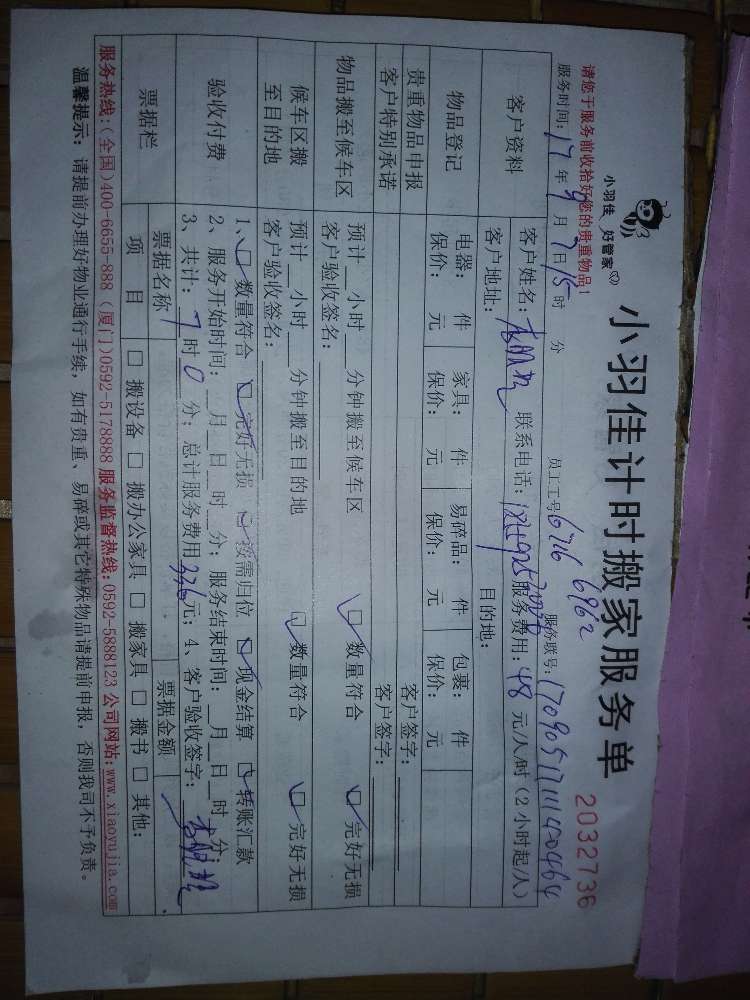 小羽佳 好管家
小羽佳计时搬家服务单
2032736
请您于服务前收拾好您的贵重物品！
员工工号 6716 6962
服务联号：
服务时间：17年9月7日15时 分
客户资料
客户姓名： 联系电话： 服务费用：48元/人/时（2小时起/人）
客户地址： 目的地：
物品登记
电器： 件 家具： 件 易碎品： 件 包裹： 件
保价： 元 保价： 元 保价： 元 保价： 元
贵重物品申报 客户签字：
客户特别承诺 客户签字：
物品搬至候车区
预计 小时 分钟搬至候车区 □数量符合 □完好无损
客户验收签名：
候车区搬至目的地
预计 小时 分钟搬至目的地 □数量符合 □完好无损
客户验收签名：
验收付费
1、□数量符合 □完好无损 □按需归位 □现金结算 □转账汇款
2、服务开始时间： 月 日 时 分；服务结束时间： 月 日 时 分；
3、共计：7时0分；总计服务费用336元；4、客户验收签字：
票据栏
票据名称 票据金额
项目 □搬设备 □搬办公家具 □搬家具 □搬书 □其他：
服务热线：（全国）400-6655-888（厦门）0592-5178888 服务监督热线：0592-5888123 公司网站：www.xiaoyujia.com
温馨提示：请提前办理好物业通行手续，如有贵重、易碎或其它特殊物品请提前申报，否则我司不予负责。